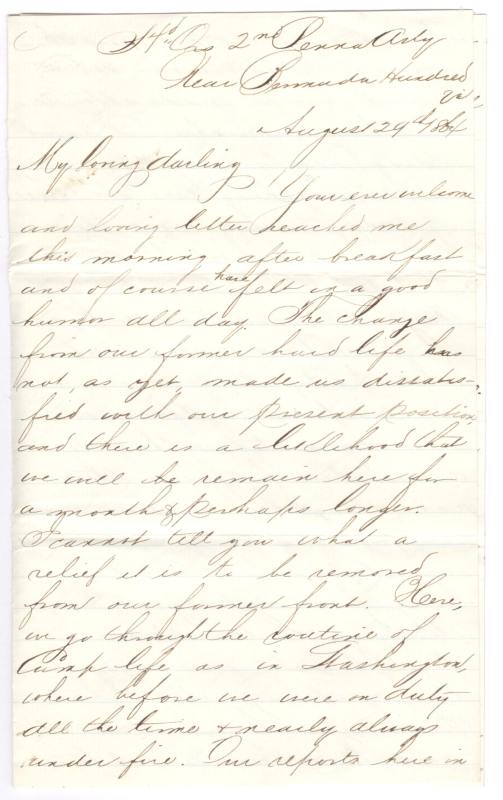 Hd Qrs 2nd Penna Arty
Near Bermuda Hundred
Va.,
August 29th 1864
My loving darling
Your ever welcome
and loving letter reached me
this morning after breakfast
and of course have felt in a good
humor all day. The change
from our former hard life has
not, as yet made us dissatis-
fied with our present position,
and there is a liklehood that
we will be remain here for
a month & perhaps longer.
I cannot tell you what a
relief it is to be removed
from our former front. Here,
we go through the routine of
Camp life as in Washington,
where before we were on duty
all the time & nearly always
under fire. Our reports here in